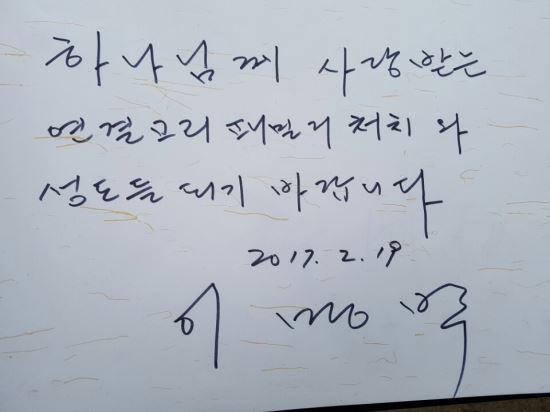 하나님께 사랑받는
연결고리 패밀리 처치 와
성도들 되기 바랍니다
2017. 2. 19